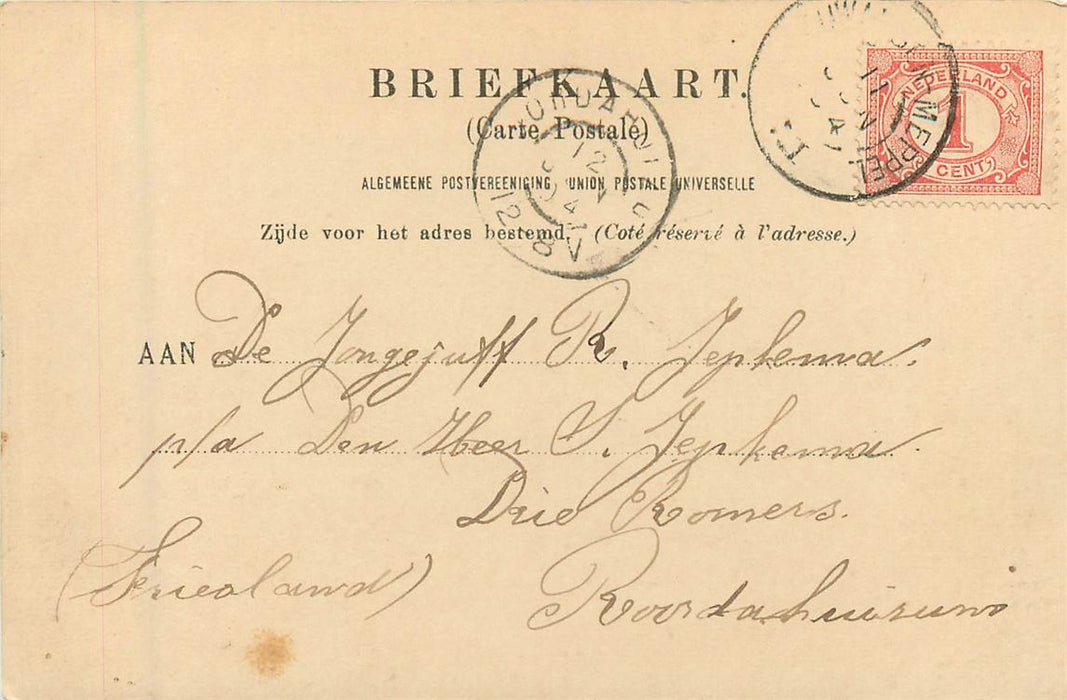 BRIEFKAART.
(Carte Postale)
ALGEMEENE POSTVEREENIGING UNION POSTALE UNIVERSELLE
Zijde voor het adres bestemd. (Coté réservé à l'adresse.)
NEDERLAND
1
CENT
MEPPEL
AAN De Jongejuff R. Jepkema.
p/a Den Heer S. Jepkema.
Drie Romers.
(Friesland)
Roordahuizum